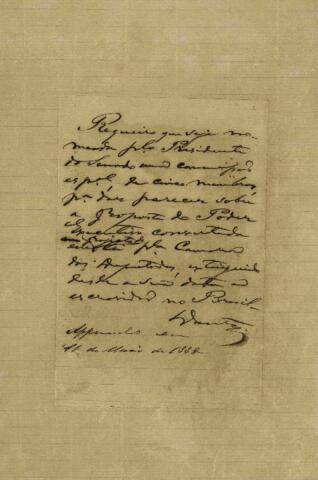 Requeiro que seja no-
meada pelo Presidente
do Senado uma commissão
espal. de cinco membros,
pa. dar parecer sobre
a Proposta do Poder
Executivo convertada
em projecto pela Camara
dos Deputados, extinguindo
desde a data a
escravidão no Brasil-
Dantas
Approvado em
de Maio de 1888